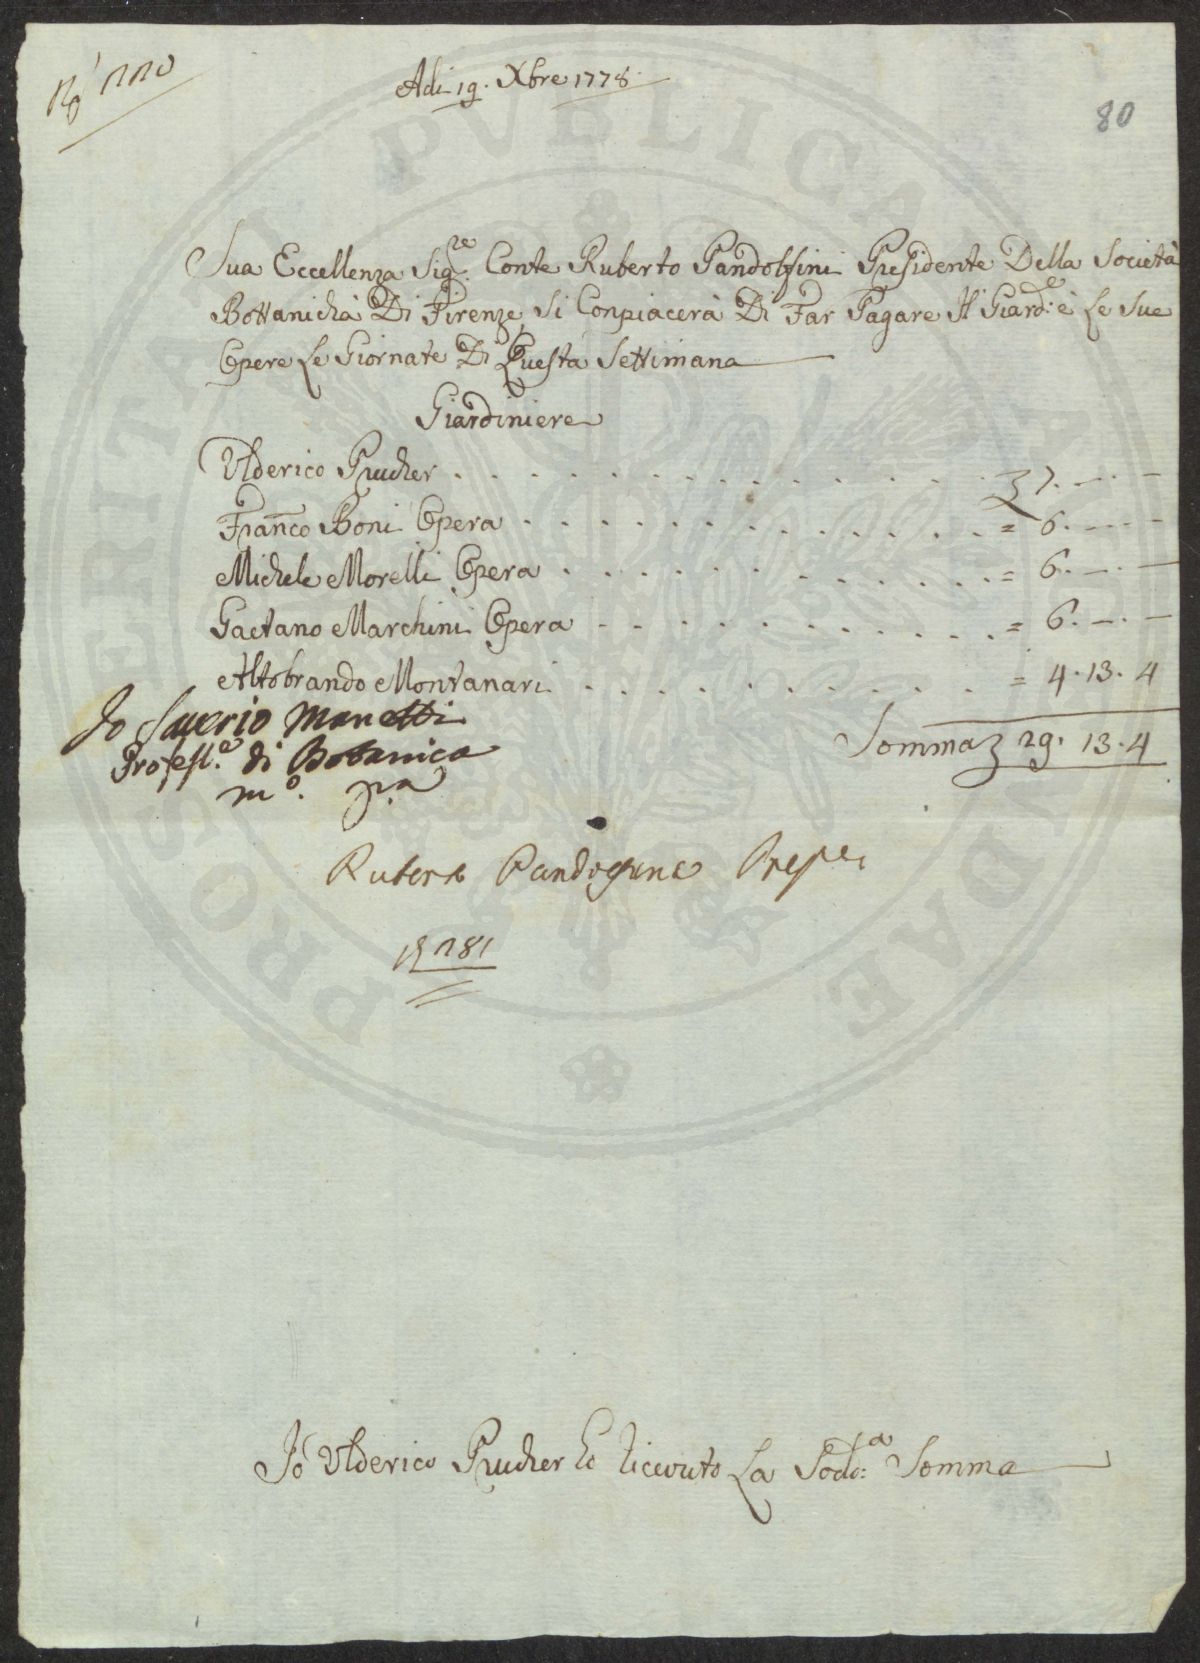 Adi 19. Xbre 1778.
80
Sua Eccellenza Sig.re Conte Ruberto Pandolfini Presidente Della Società
Bottanichà Di Firenze, Si Conpiacerà Di Far Pagare Il Giard.e è Le Sue
Opere Le Giornate Di Questa Settimana
Giardiniere
Ulderico Prucher . . . . . . . . . . . . . . 7. — . —
Franco Boni Opera . . . . . . . . . . . . . = 6. — . —
Michele Morelli Opera . . . . . . . . . . . = 6. — . —
Gaetano Marchini Opera . . . . . . . . . . = 6. — . —
Altobrando Montanari . . . . . . . . . . . = 4. 13. 4
Somma 29. 13. 4
Io Saverio Manetti
Profess.e di Botanica
m.o p.a
Ruberto Pandolfini Presid.
281
Io Ulderico Prucher Ho ricevuto La Sod.a Somma
PROSPERITATI PVBLICAE ADAVGENDAE